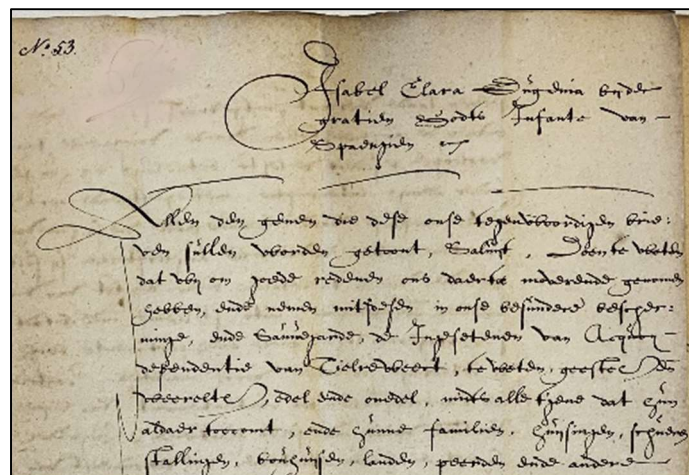 No. 53.
Isabel Clara Eugenia bij der
gratien Godts Infante van
Spaengien etc
Allen den genen die dese onse tegenwoordigen brie:
ven sullen worden getoont, Saluijt, Doen te weten
dat wij om goede redenen ons daertoe moverende genomen
hebben, ende nemen mitsdesen in onse besundere bescher:
minge, ende Sauvegarde, de Ingesetenen van Acquoij
dependentie van Tielreweert, te weten, geestel en
weerelts, edel ende onedel, midts alle tgene dat hun
aldaer toecomt, ende hunne familien, huijsingen, schueren
stallingen, bouhuijsen, landen, peerden ende andere